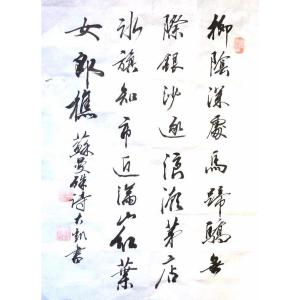 柳陰深處馬蹄驕無
際銀沙逐退潮茅店
冰旗知市近滿山紅葉
女郎樵 蘇曼殊詩大凱書